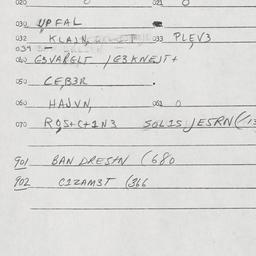 020 0 021 0
030 UPFAL
032 KLAIN, 033 PLEV3
034
040 G3VARGLT / G3KNEJT+
050 CEB3R
060 HAJVN, 061 0
070 RQS+C+1N3 SOL1S JESRN(/13
901 BAN DRESTN (680
902 C1ZAM3T (366